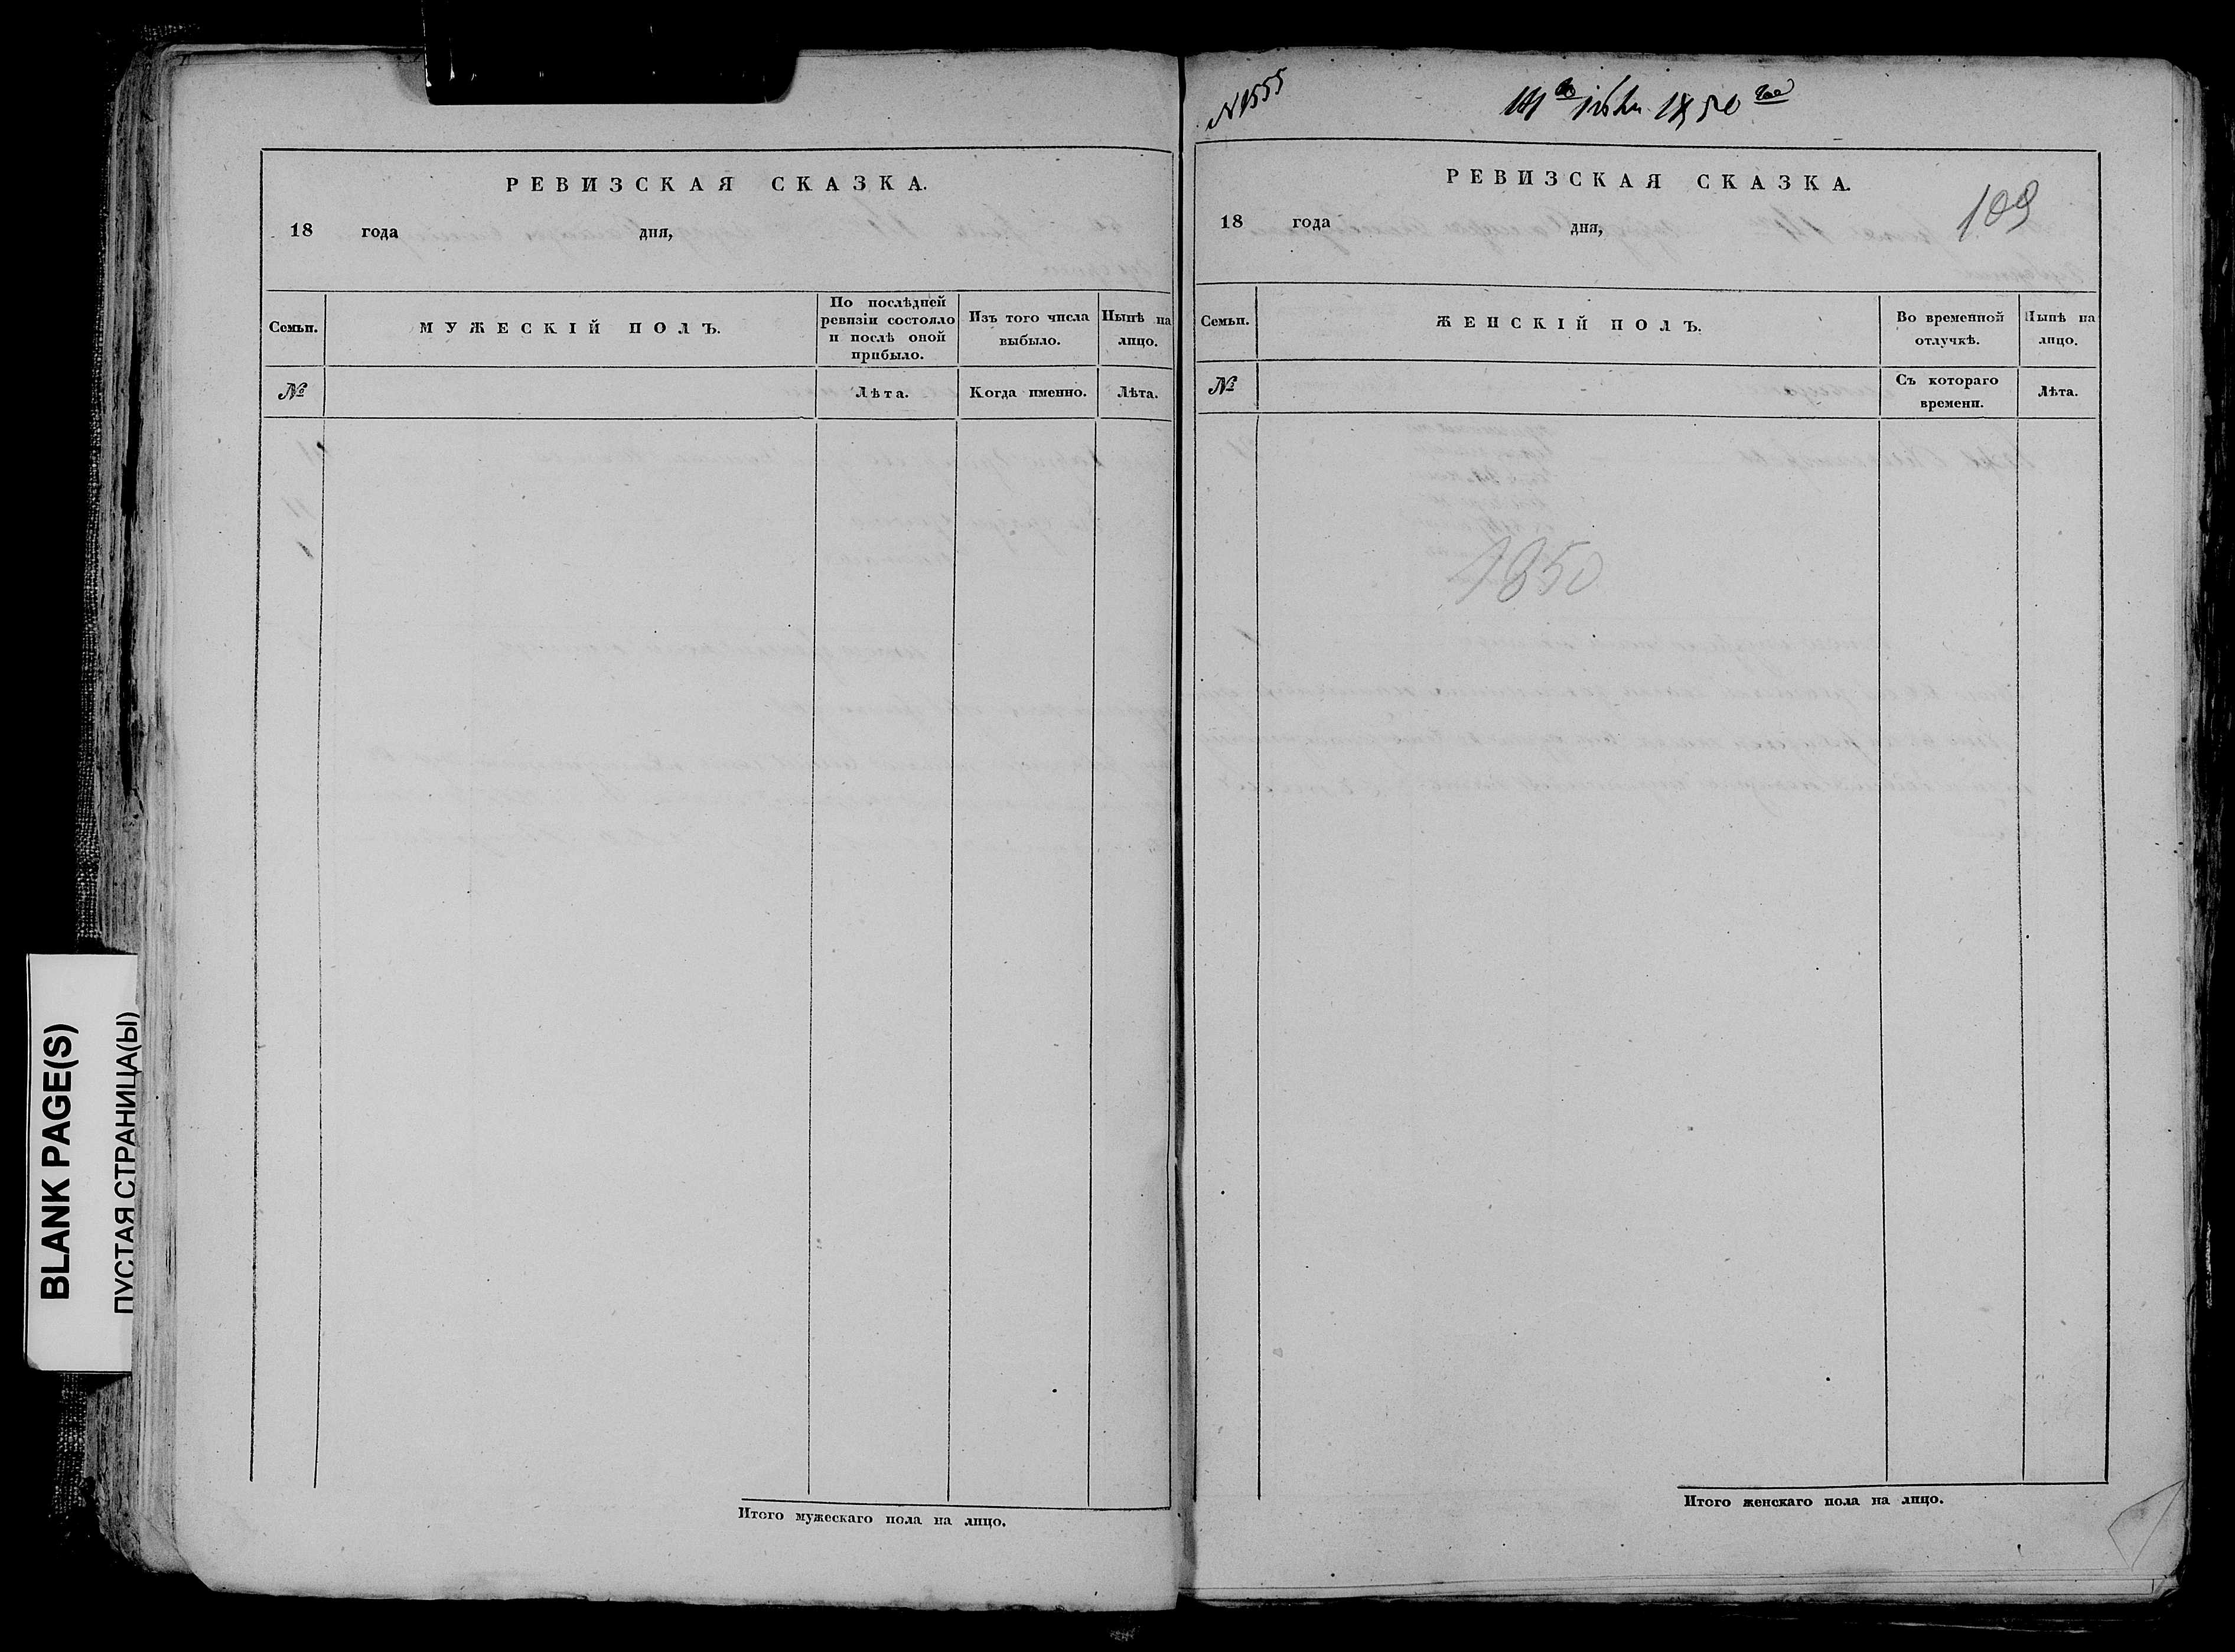 РЕВИЗСКАЯ СКАЗКА.
18 года дня,
Семьи. МУЖЕСКІЙ ПОЛЪ. По послѣдней ревизіи состояло и послѣ оной прибыло. Изъ того числа выбыло. Нынѣ на лицо.
№ Лѣта. Когда именно. Лѣта.
Итого мужескаго пола на лицо.
№ 1555
1850
РЕВИЗСКАЯ СКАЗКА.
109
18 года дня,
Семьи. ЖЕНСКІЙ ПОЛЪ. Во временной отлучкѣ. Нынѣ на лицо.
№ Съ котораго времени. Лѣта.
1850
Итого женскаго пола на лицо.
BLANK PAGE(S)
ПУСТАЯ СТРАНИЦА(Ы)